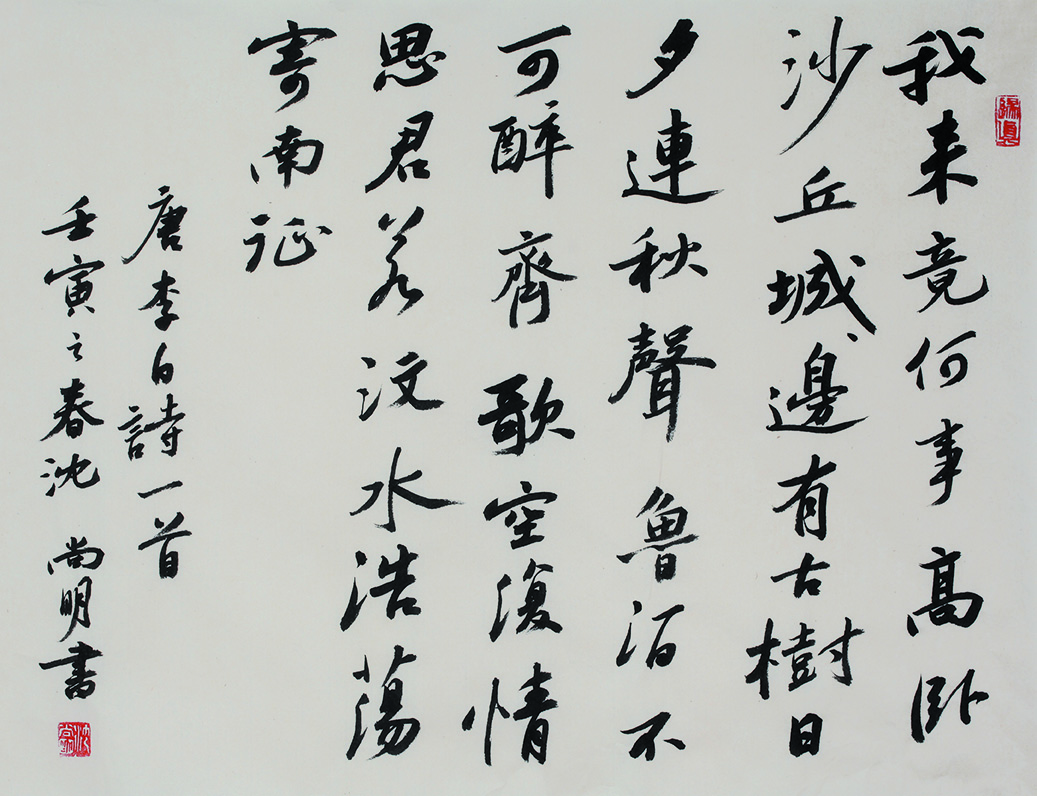 我来竟何事高卧
沙丘城邊有古樹日
夕連秋聲魯酒不
可醉齊歌空復情
思君若汶水浩蕩
寄南征
唐李白詩一首
壬寅之春沈尚明書